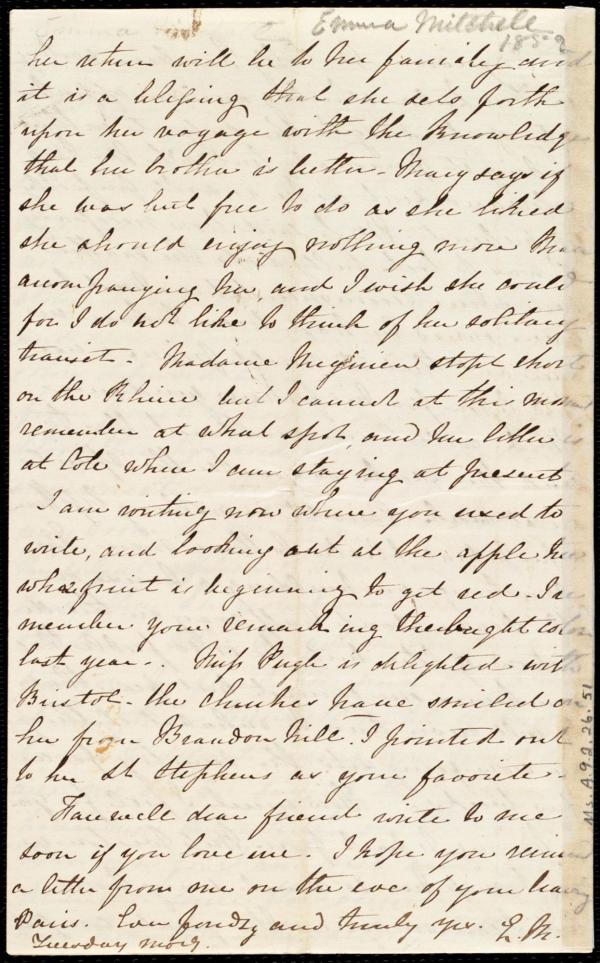 Emma Mitchell
1852
her return will be to her family and
it is a blessing that she sets forth
upon her voyage with the knowledge
that her brother is better - Mary says if
she was but free to do as she liked
she should enjoy nothing more than
accompanying her, and I wish she could
for I do not like to think of her solitary
transit - Madame stopt short
on the Rhine but I cannot at the moment
remember at what spot, and her letter is
at Cote where I am staying at present
I am writing now where you used to
write, and looking out at the apple tree
whose fruit is beginning to get red - I re
member your remarking the bright color
last year - Miss Pugh is delighted with
Bristol - the churches have smiled on
her from Brandon hill - I pointed out
to her St Stephens as your favorite -
Farewell dear friend write to me
soon if you love me. I hope you
a letter from me on the eve of your leaving
Paris. Ever fondly and truly yrs. E. M.
Tuesday morg.
Ms. A. 9. 2. 26. 51